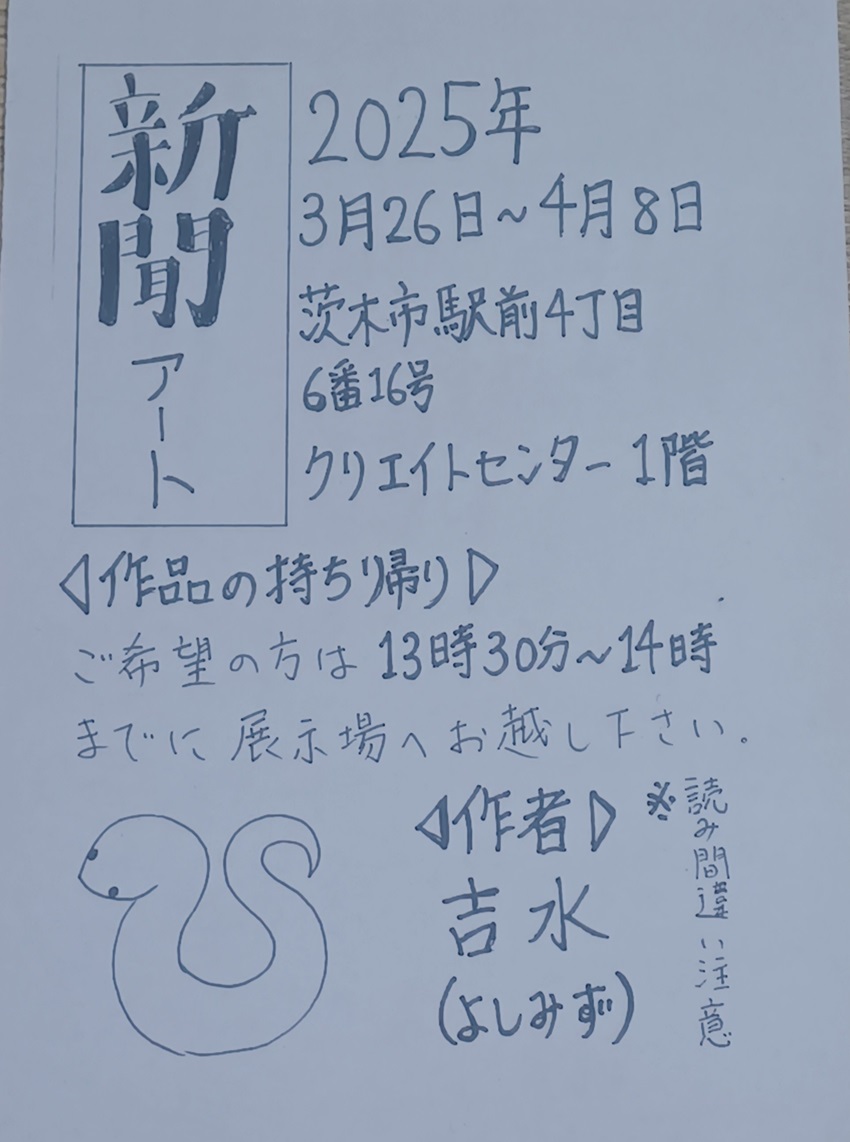 新聞アート
2025年
3月26日~4月8日
茨木市駅前4丁目
6番16号
クリエイトセンター1階
◁作品の持ちり帰り▷
ご希望の方は13時30分~14時
までに展示場へお越し下さい。
◁作者▷
吉水
(よしみず)
※読み間違い注意